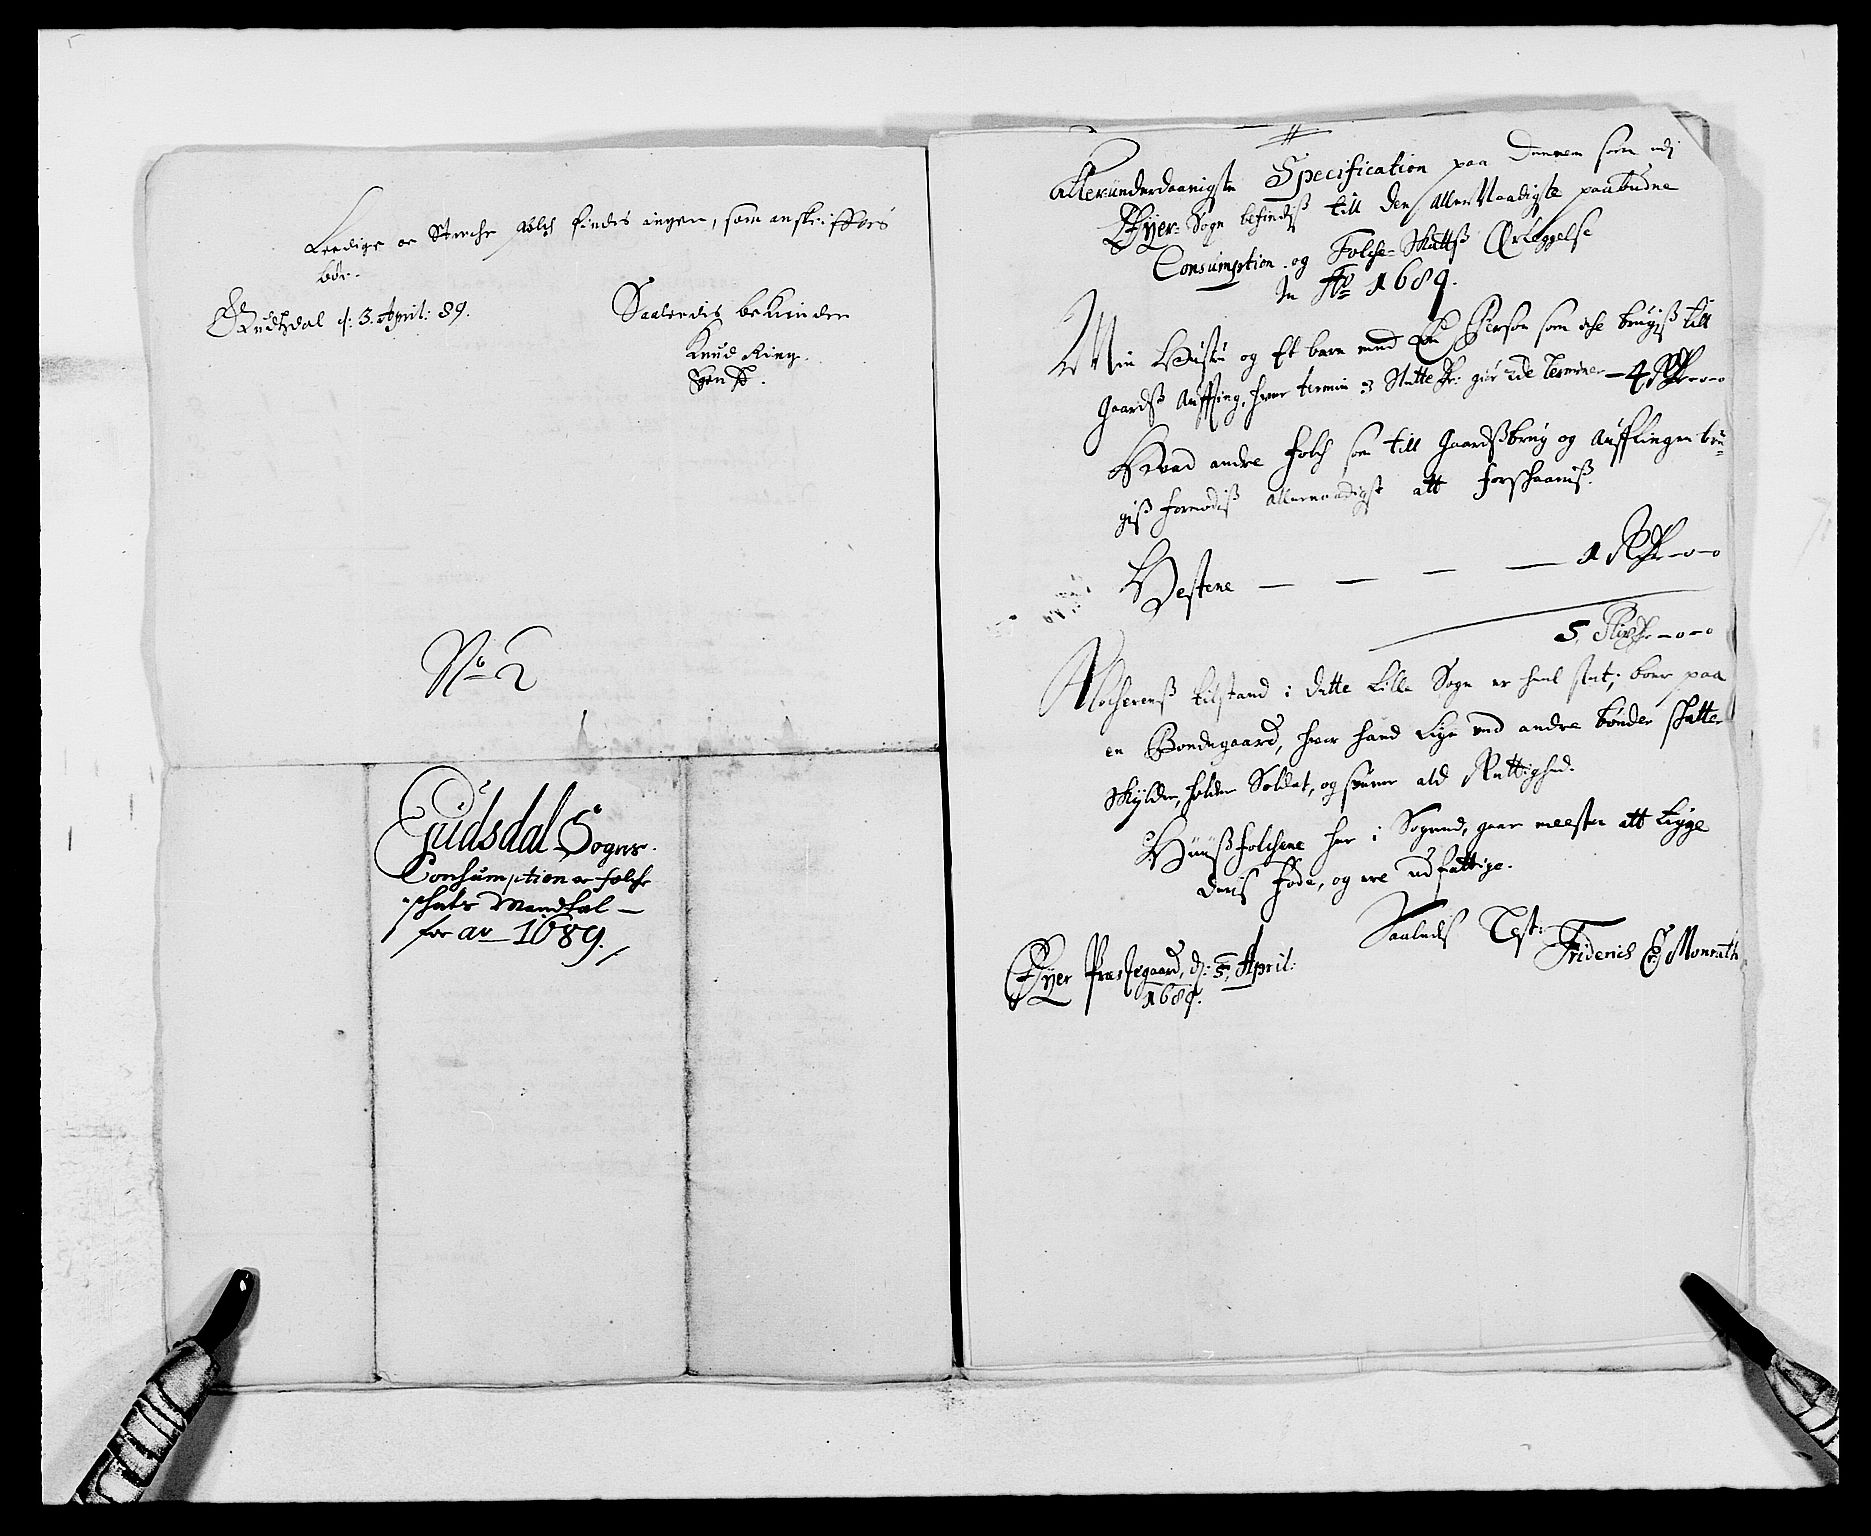 Leedige og Sterche folch findes ingen, som anskriffves
bør.
Gudsdal d: 3. April: 89.
Saaledis bekiender
Knud Ring
No 2
Gudsdal Sogns
Consumption og folche
schats Mandtal
for ao 1689.
Allerunderdaanigste Specification paa Dennem som udj
Øyer Sogn befindiß till den Aller Naadigste paabudne
Consumption og Folche-Skattß Erleggelse
in Ao 1689.
Min Hustru og Et barn med En Person som iche brugiß till
Gaardß Auffling, hver termin 3 Slette dr: giør 2de Terminer – 4 Rdr – o – o
Hvad andre folch som till Gaardßbrug og Aufflingen bru-
giß formodiß allernaadigst att forschaaniß.
Hestene — — — — 1 Rdr – o – o
5. Rixdr – o – o
Klocherenß tilstand i dette Lille Sogn er heel slet; boer paa
en Bondegaard, hvor hand lige ved andre bønder skatter
Skylder, holder Soldat, og svarer ald Rettighed.
Huußfolchene her i Sognet, gaar meesten att tigge
deris føde, og ere udfattige.
Saaledß Test:
Friderich C: Monrath
Øyer Præstegaard, d: 5. April:
1689.